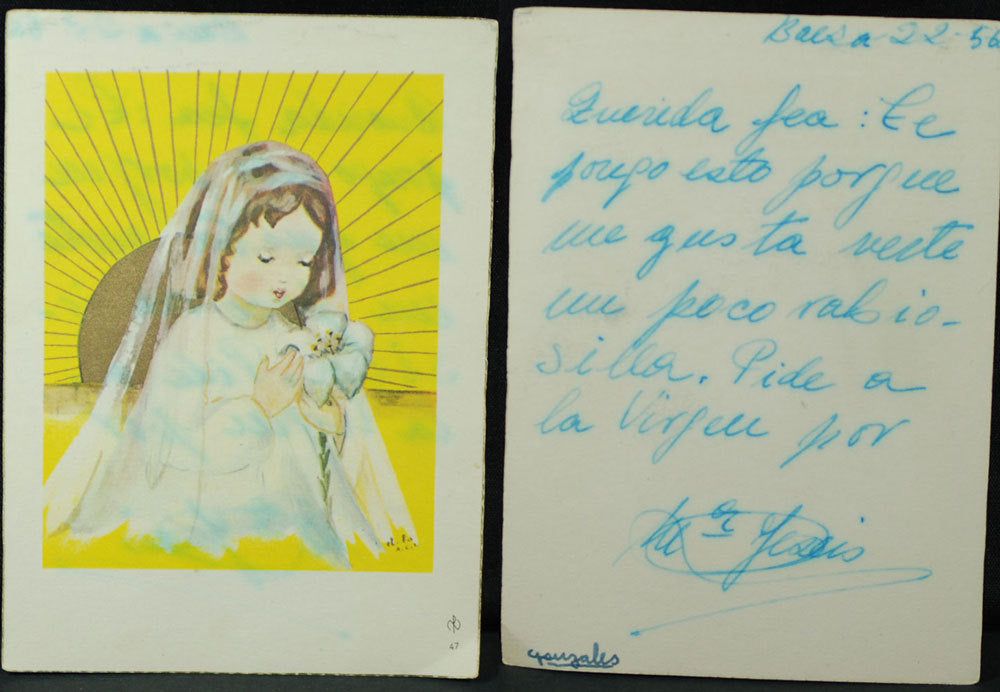 47
Baeza 22-56
Querida fea: Te
pongo esto porque
me gusta verte
un poco rabio-
silla. Pide a
la Virgen por
Mª Jesús
gonzales